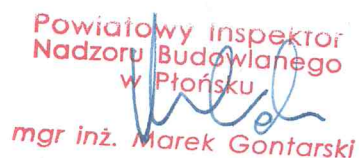 Powiatowy Inspektor
Nadzoru Budowlanego
w Płońsku
mgr inż. Marek Gontarski